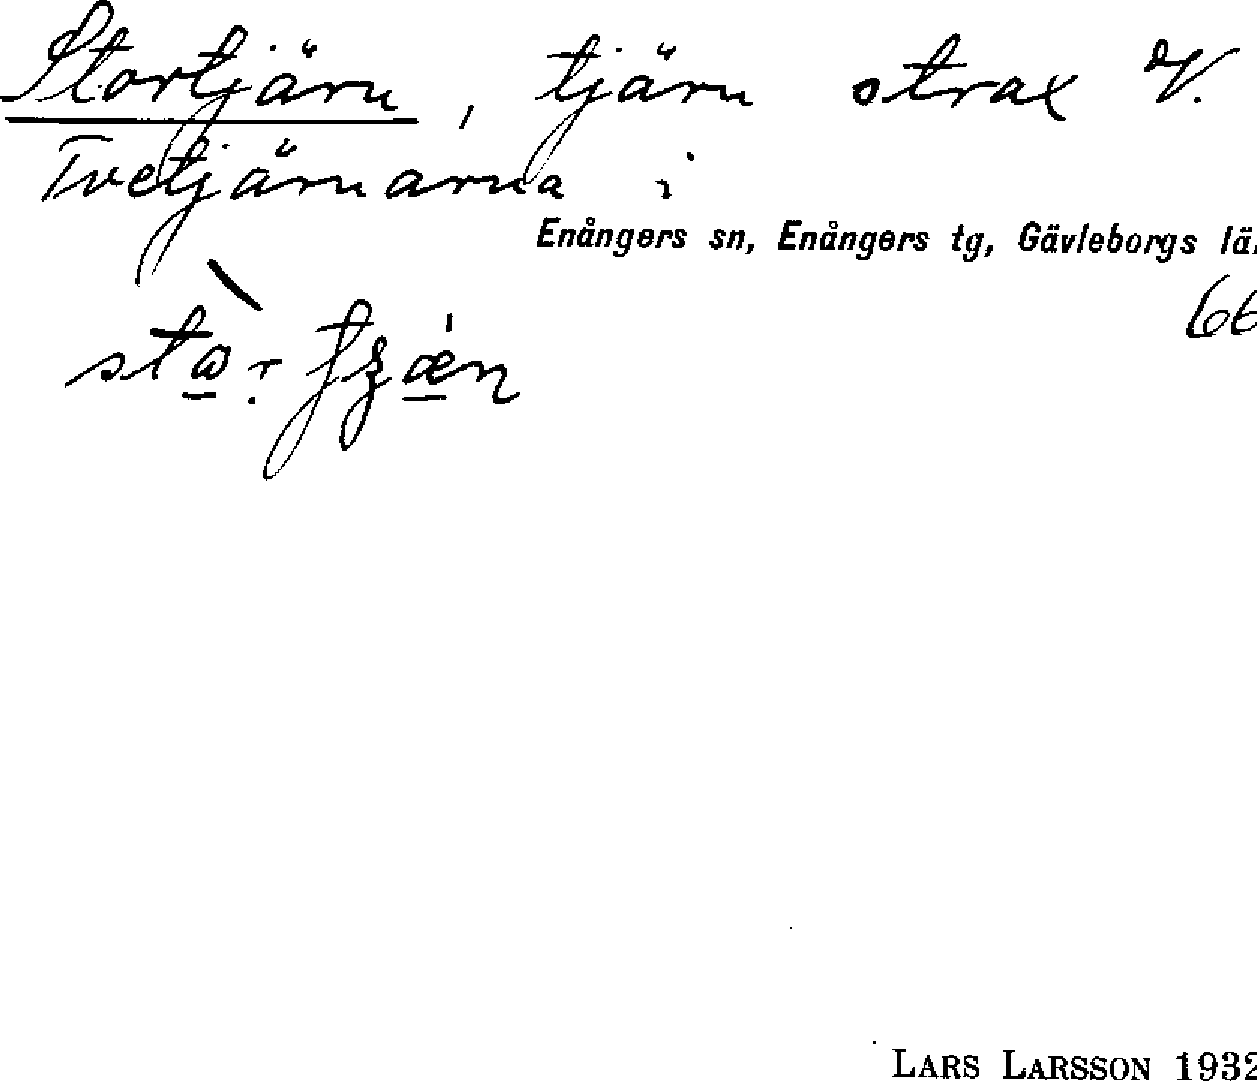 Stortjärn, tjärn strax V.
Tvetjärnarna i
Enångers sn, Enångers tg, Gävleborgs lä
66
LARS LARSSON 1932